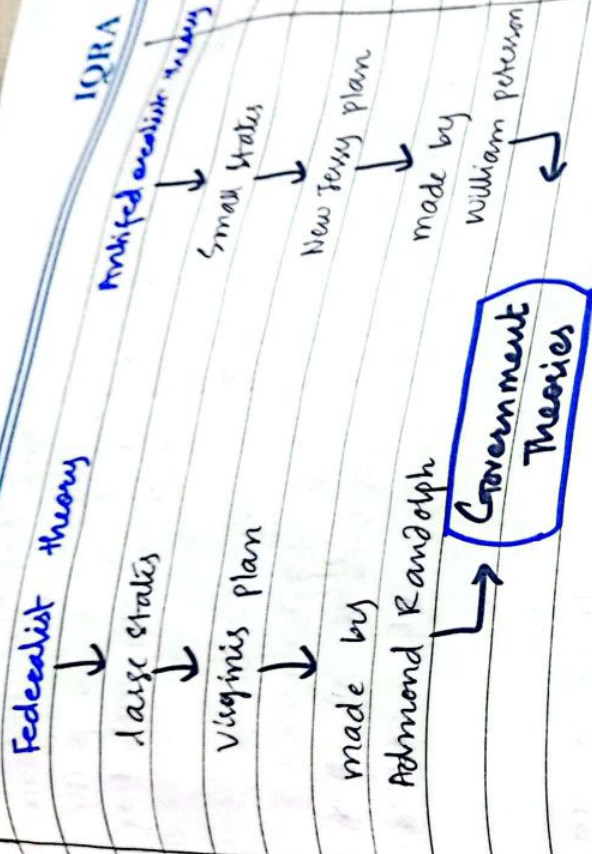 IQRA
Federalist theory
Large states
Virginis plan
made by
Admond Randolph
Antifederalist theory
Small states
New Jersy plan
made by
William peterson
Government
Theories